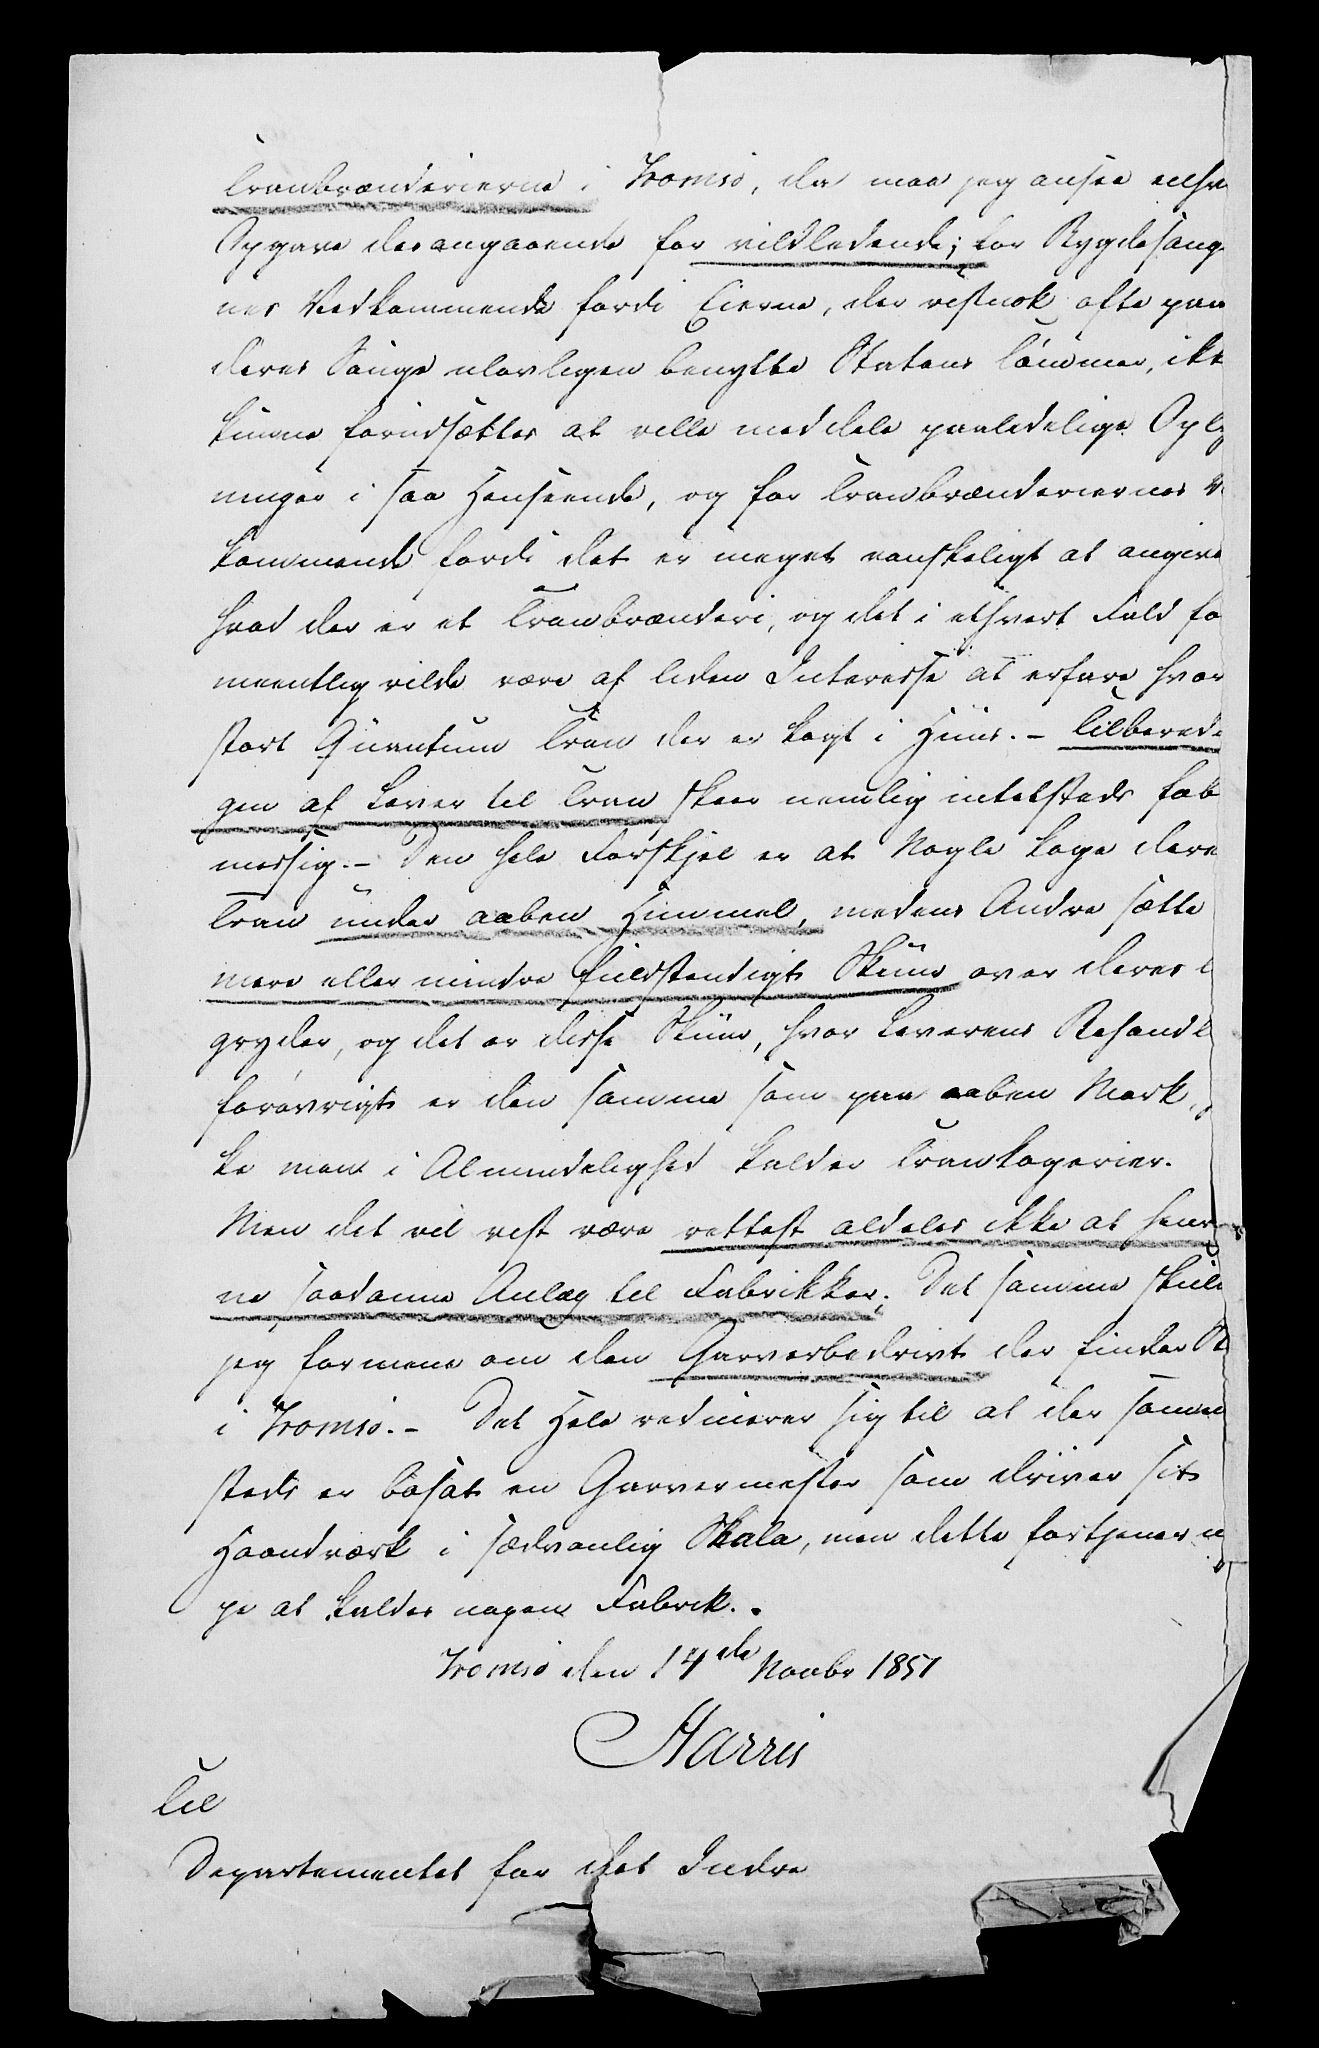 Tranbrænderierne i Tromsø, da maa jeg ansee enhv
Opgave desangaaende for vildledende; for Bygdesaug
nes Vedkommende fordi Eierne, der vistnok ofte paa
deres Sauge ulovligen benytte Statens Tømmer, ikk
kunne forudsættes at ville meddele paalidelige Oply
ninger i saa Henseende, og for Tranbrænderiernes V
kommende fordi det er meget vanskeligt at angive
hvad der er et Tranbrænderi, og det i ethvert Fald fo
meentlig vilde være af liden Interesse at erfare hvor
stort Quantum Tran der er kogt i Huus. - Tilbered
gen af Lever til Tran skeer nemlig intetsteds fab
messig. - Den hele Forskjel er at Nogle koge deres
Tran under aaben Himmel, medens Andre sætte
mere eller mindre fuldstendigt Skuur over deres
gryder, og det er disse Skuur, hvor Leverens Behandl
forøvrigt er den samme som paa aaben Mark,
ke man i Almindelighed kalder Trankogerier.
Men det vil vist være rettest aldeles ikke at henr
ne saadanne Anlæg til Fabrikker. Det samme skuld
jeg formene om den Garverbedrivt der finder St
i Tromsø. - Det Hele reducerer sig til at der samme
steds er bosat en Garvermester som driver sit
Haandværk i sædvanlig Skala, men dette fortjener
ge at kaldes nogen Fabrik.
Tromsø den 14de Novbr 1851
Harris
Til
Departementet for det Indre